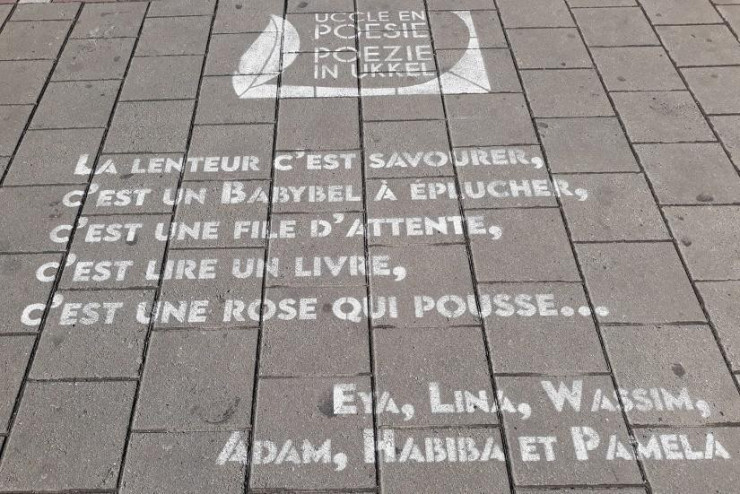 UCCLE EN
POESIE
POEZIE
IN UKKEL
LA LENTEUR C'EST SAVOURER,
C'EST UN BABYBEL À ÉPLUCHER,
C'EST UNE FILE D'ATTENTE,
C'EST LIRE UN LIVRE,
C'EST UNE ROSE QUI POUSSE...
EYA, LINA, WASSIM,
ADAM, HABIBA ET PAMELA